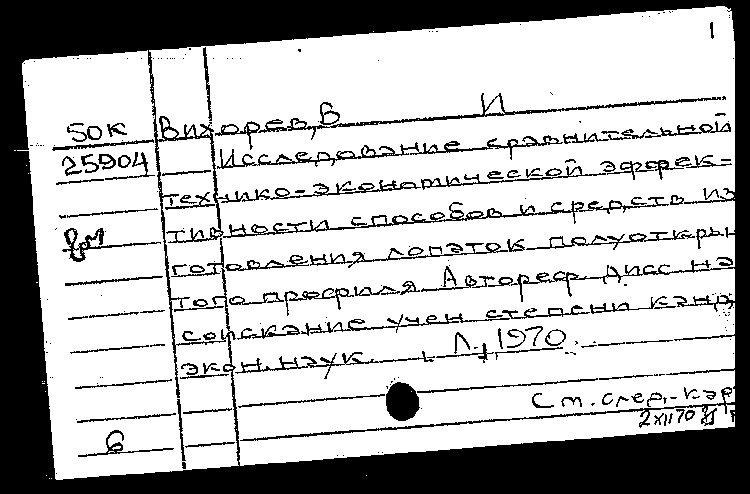 1
50к Вихорев, В И
25904 Исследование сравнительной
технико-экономической эффек-
тивности способов и средств из
готовления лопаток полуоткры
того профиля Автореф дисс на
соискание учен степени канд
экон. наук. Л., 1970.
См. след. кар
2 XII 70
6